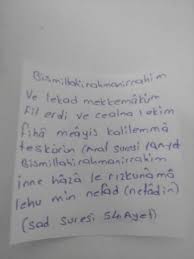 Bismillahirahmanirrahim
Ve lekad mekkemâküm
fil erdi ve cealna lekim
fihâ meâyis kalilemmâ
teskürün (Araf suresi 10Ayet
Bismillahirahmanirrahim
inne hâzâ le rizkunâmâ
lehu min nefad (nefâdin)
(sad suresi 54Ayet)